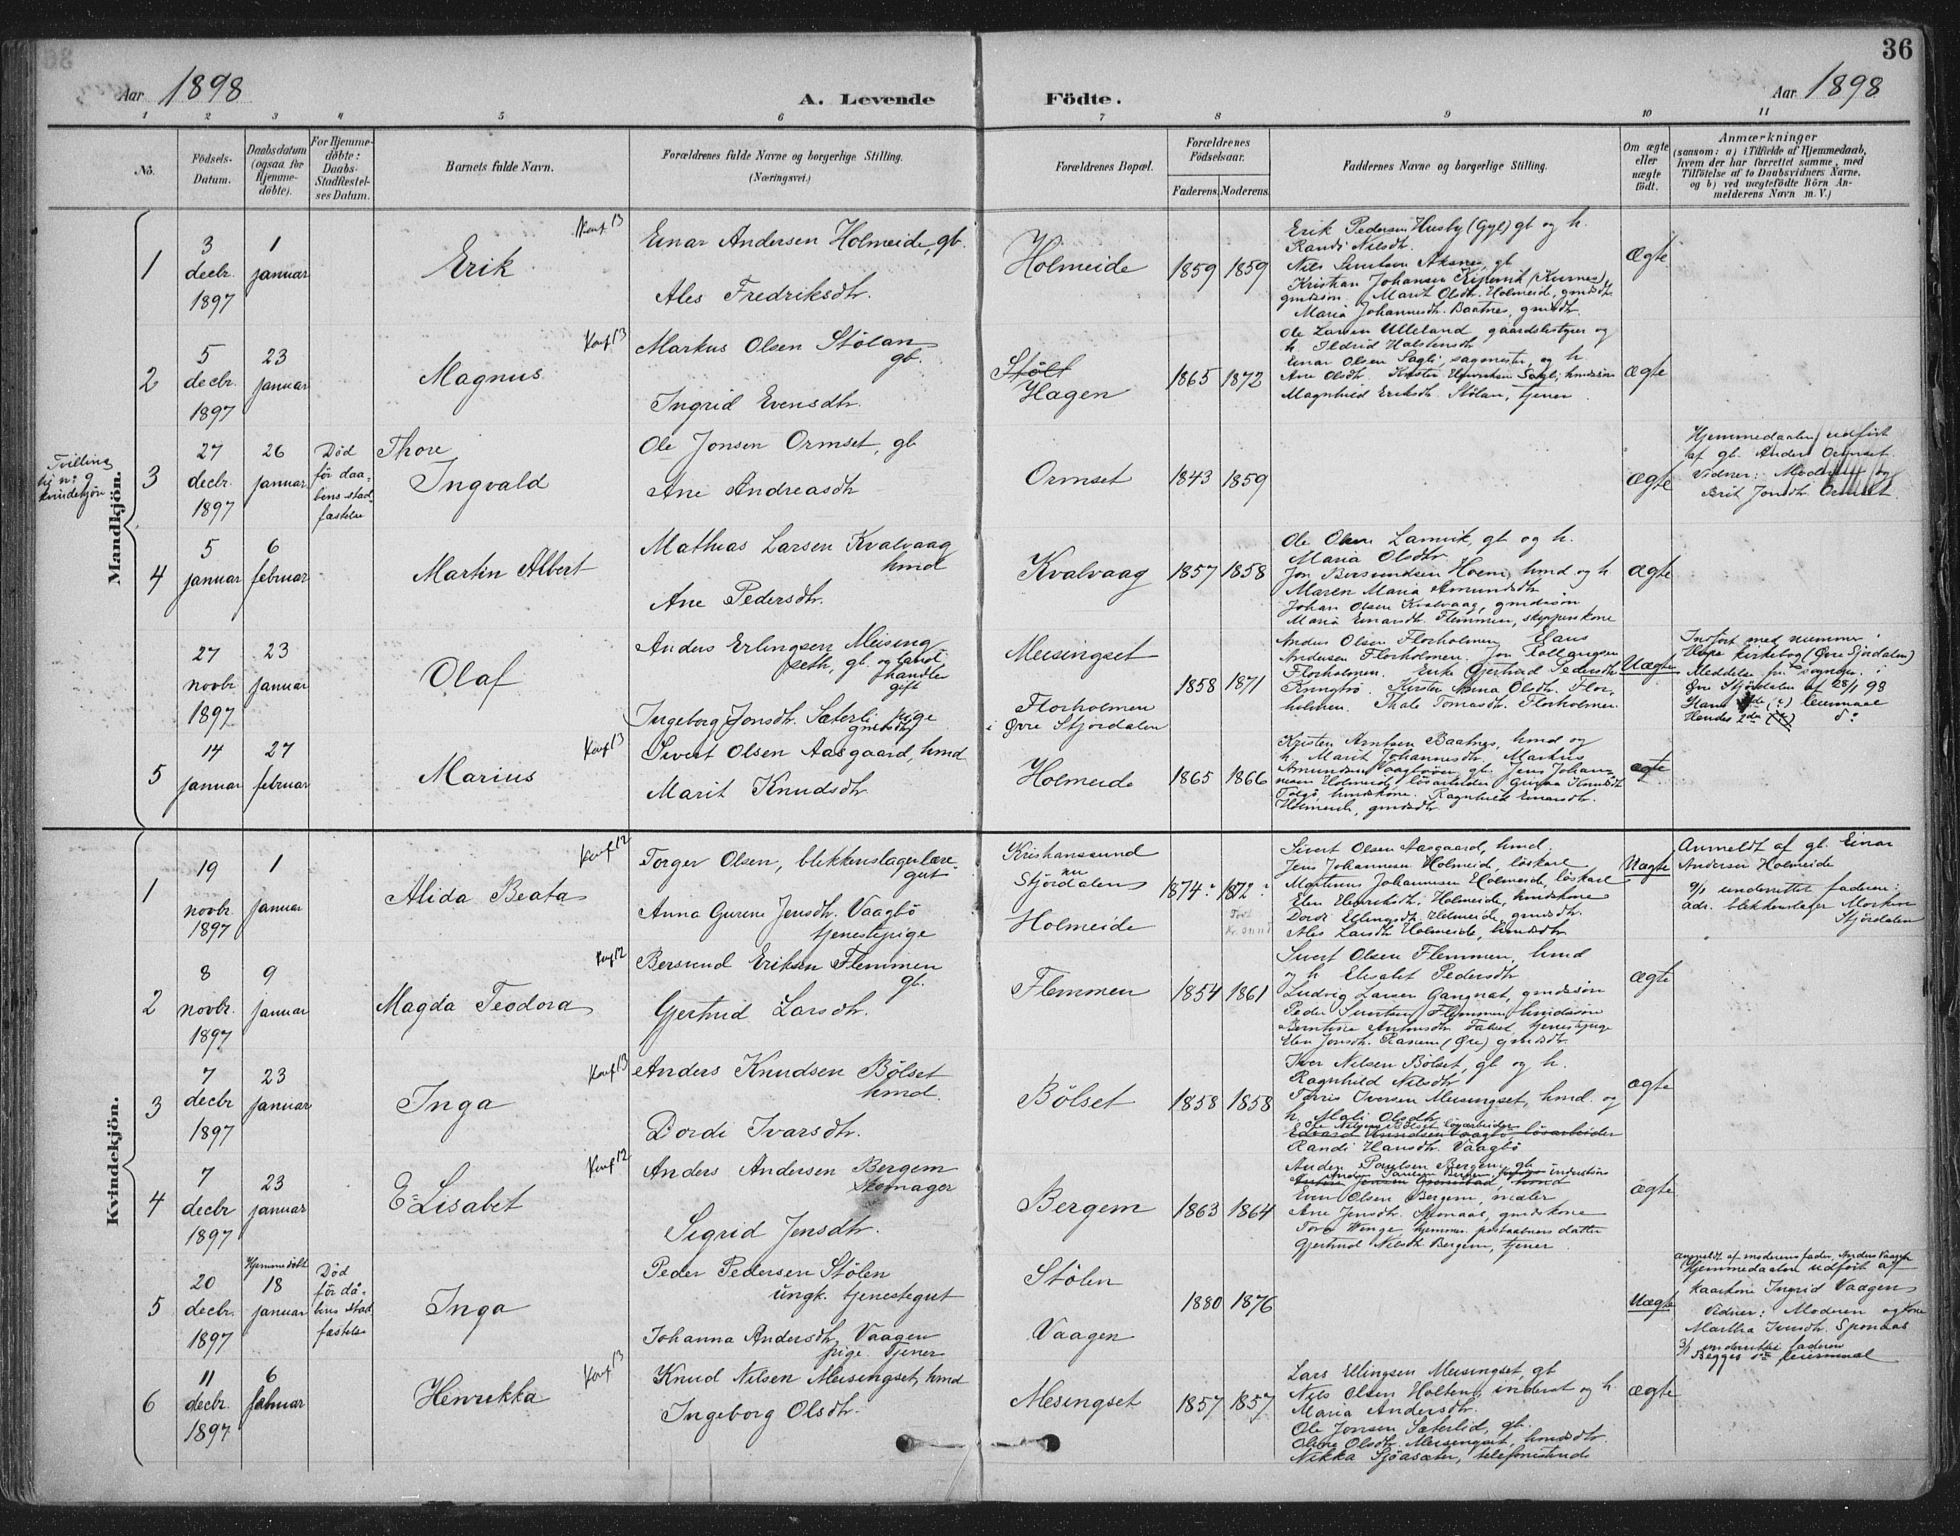 36
Aar 1898
A. Levende Födte.
Aar 1898
1 2 3 4 5 6 7 8 9 10 11
No.
Födsels-Datum.
Daabsdatum (ogsaa for Hjemme-döbte).
For Hjemme-döbte: Daabs-Stadfæstel-ses Datum.
Barnets fulde Navn.
Forældrenes fulde Navne og borgerlige Stilling.
(Næringsvei.)
Forældrenes Bopæl.
Forældrenes Födselsaar.
Faderens. Moderens.
Faddernes Navne og borgerlige Stilling.
Om ægte eller uægte födt.
Anmærkninger
(saasom: a) i Tilfælde af Hjemmedaab,
hvem der har forrettet samme, med
Tilföielse af to Daabsvidners Navne,
og b) ved uægtefödte Börn An-
melderens Navn m. V.)
Mandkjön.
1
3 decbr. 1897
1 januar
Erik
Konf 13
Einar Andersen Holmeide, gb.
Ales Fredriksdtr.
Holmeide
1859 1859
Erik Pedersen Husby (Gyl) gb og h.
Randi Nilsdtr.
Nils Aksnes, gb
Kristian Johansen (Kurnes)
gmdssön. Marit Olsdtr. Holmeid, gmdsdtr.
Maria Johannesdtr. Baatnes, gmdsdtr.
Ægte
2
5 decbr. 1897
23 januar
Magnus
Konf 13
Markus Olsen Stölan
gb.
Ingrid Evensdtr.
Stölt
Hagen
1865 1872
Ole Larsen Ulleland, gaardsbestyrer og
h. Ildrid Halstensdtr
Einar Olsen Sagli, sagmester, og h.
Ane Olsdtr. Sagli, hmdssön
Magnhild Eriksdtr. Stölan, tjener
ægte
Tvilling
til n: 9
kvindekjön
3
27 decbr. 1897
26 januar
Död
för daa-
bens stad
fæstelse
Thore
Ingvald
Ole Jonsen Ormset, gb
Ane Andreasdtr
Ormset
1843 1859
Ægte
Hjemmedaaben udfört
af gb. Anders Ormset.
Vidner: Moderen og
Brit Jonsdtr. Ormset.
4
5 januar
6 februar
Martin Albert
Mathias Larsen Kvalvaag
hmd
Ane Pedersdtr.
Kvalvaag
1857 1858
Ole Olsen Lamvik, gb og h.
Maria Olsdtr
Jon Bersvendsen Hoem, hmd og h
Maren Maria Amundsdtr
Johan Olsen Kvalvaag, gmdssön
Maria Einarsdtr. Flemmen, skipperskone
ægte
27 novbr 1897
23 januar
Olaf
Anders Erlingsen Meising
seth, gb. og land-
handler
gift
Ingeborg Jonsdtr. Sæterli pige
gmdsdtr
Meisingset
Florholmen
i Övre Stjördalen
1858 1871
Anders Olsen Florholmen. Elaus
Andersen Florholmen. Jon Kollangsen
Florholmen. Erika Gjertrud Pedersdtr
Kringbö. Kirsten Anna Olsdtr. Flor-
holmen. Thale Tomasdtr. Florholmen
Uægte
Indfört med nummer i
kirkebog (Övre Stjördalen)
Meddelse fra sognepr. i
Övre Stjördalen af 28/1 98
Hans leiermaal
Hendes 2det do:
5
14 januar
27 februar
Marius
Konf 13
Sivert Olsen Aasgaard, hmd
Marit Knudsdtr.
Holmeide
1865 1866
Kristen Arntsen Baatnes, hmd og
h. Marit Johannesdtr. Markus
Amundsen Vaagböen, gb. Jens Johan-
nesen Holmeid, lösarbeider. Knudsdtr
hmdskone. Ragnhild Einarsdtr.
Holmeide, gmdsdtr.
ægte
Kvindekjön.
1
19 novbr. 1897
1 januar
Alida Beata
Konf 12
Torger Olsen, blikkenslagerlære-
gut
Anna Gurine Jensdtr. Vaagbö
tjenestepige
Kristianssund
nu
Stjördalen
Holmeide
1874. 1872
Sivert Olsen Aasgaard, hmd.
Jens Johannesen Holmeid, löskarl
Martinus Johannesen Holmeid, löskarl
Holmeide, hmdskone
Dordi Ellingsdtr. Holmeide, gmdsdtr.
Ales Larsdtr Holmeide, hmdsdtr
Uægte
Anmeldt af gb. Einar
Andersen Holmeide
9/1 underrettet faderen:
adr. blikkenslager Morken
Stjördalen
2
8 novbr. 1897
9 januar
Magda Teodora
Konf 12
Bersvend Eriksen Flemmen
gb.
Gjertrud Larsdtr.
Flemmen
1854 1861
Sivert Olsen Flemmen, hmd
og h. Elisabet Pedersdtr
Ludvig Larsen Gangnat, gmdssön
Peder Sivertsen Flemmen, hmdssön
Berntine Antonsdtr. Talset, tjenestepige
Elen Jonsdtr. Ranem (Öre) gmdsdtr
ægte
3
7 decbr 1897
23 januar
Inga
Konf 13
Anders Knudsen Bölset
hmd.
Dordi Ivarsdtr.
Bölset
1858 1858
Iver Nilsen Bölset, gb og h.
Ragnhild Nilsdtr
Torris Iversen Meisingset, hmd. og
h. Mali Olsdtr
Ole Nilsen Bölset lösarbeider
Edvard Knudsen Vaagbö lösarbeider
Randi Hansdtr. Vaagbö
ægte
4
7 decbr 1897
23 januar
E=Lisabet
Konf 12
Anders Andersen Bergem
Skomager
Sigrid Jensdtr.
Bergem
1863 1864
Anders Paulsen Bergem, gb
Even Olsen Bergem, maler
Ane Jensdtr. Sponaas, gmdskone
Tora Winge hjemmev. postaabners datter
Gjertrud Nilsdtr Bergem, tjener
ægte
5
20 decbr. 1897
Hjemmedöbt
18 januar
Död
för då-
bens stad
fæstelse
Inga
Peder Pedersen Stölen
ungk. tjenestegut
Johanna Andersdtr. Vaagen
pige. Tjener
Stölen
Vaagen
1880 1876
Uægte
anmeldt af moderens fader, Anders Vaagen
Hjemmedaaben udfört af
kaarkone Ingrid Vaagen
Vidner: Moderen og kone
Martha Iversdtr. Sponaas
3/1 underrettet faderen
Begges 1ste leiermaal
6
11 decbr. 1897
6 februar
Henrikka
Konf 13
Knud Nilsen Meisingset, hmd
Ingeborg Olsdtr.
Mesingset
1857 1857
Lars Ellingsen Meisingset, gb
Nils Olsen Holten, inderst og h.
Maria Andersdtr.
Ole Jonsen Sæterlid, gb.
Oline Olsdtr. Meisingset, hmdsdtr.
Nikka Sjöasæter, telefonistinde
Ægte